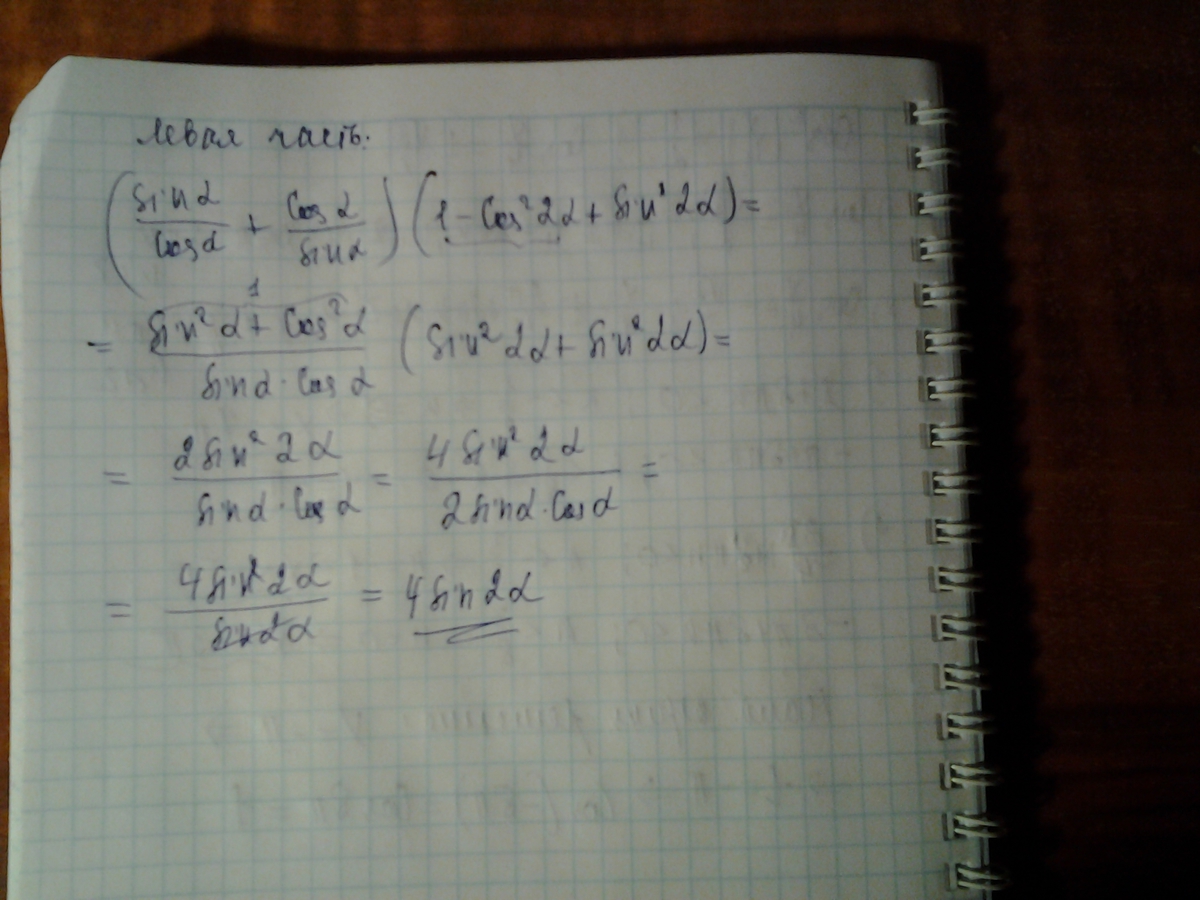 Левая часть:
(sinα/cosα + cosα/sinα)(1 - cos²2α + sin²2α) =
1
= (sin²α + cos²α)/(sinα · cosα) (sin²2α + sin²2α) =
= 2sin²2α/(sinα · cosα) = 4sin²2α/(2sinα · cosα) =
= 4sin²2α/sin2α = 4sin2α